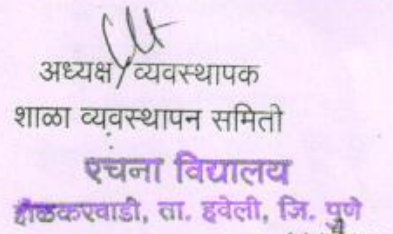 अध्यक्ष/व्यवस्थापक
शाळा व्यवस्थापन समिती
रचना विद्यालय
होळकरवाडी, ता. हवेली, जि. पुणे